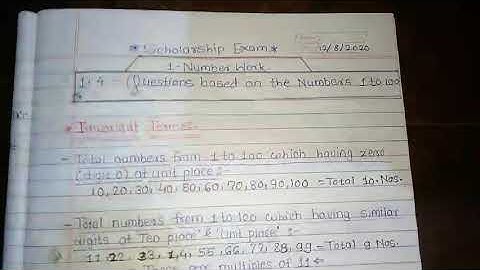 * Scholarship Exam *
12/8/2020
1 - Number Work.
1.4 - Questions based on the Numbers 1 to 100
* Important Terms -
- Total numbers from 1 to 100 which having zero
(digit 0) at unit place :-
10, 20, 30, 40, 50, 60, 70, 80, 90, 100 = Total 10. Nos.
- Total numbers from 1 to 100 which having similar
digits at 'Ten place' & 'Unit place' :-
11, 22, 33, 44, 55, 66, 77, 88, 99 = Total 9 Nos.
These are multiples of 11